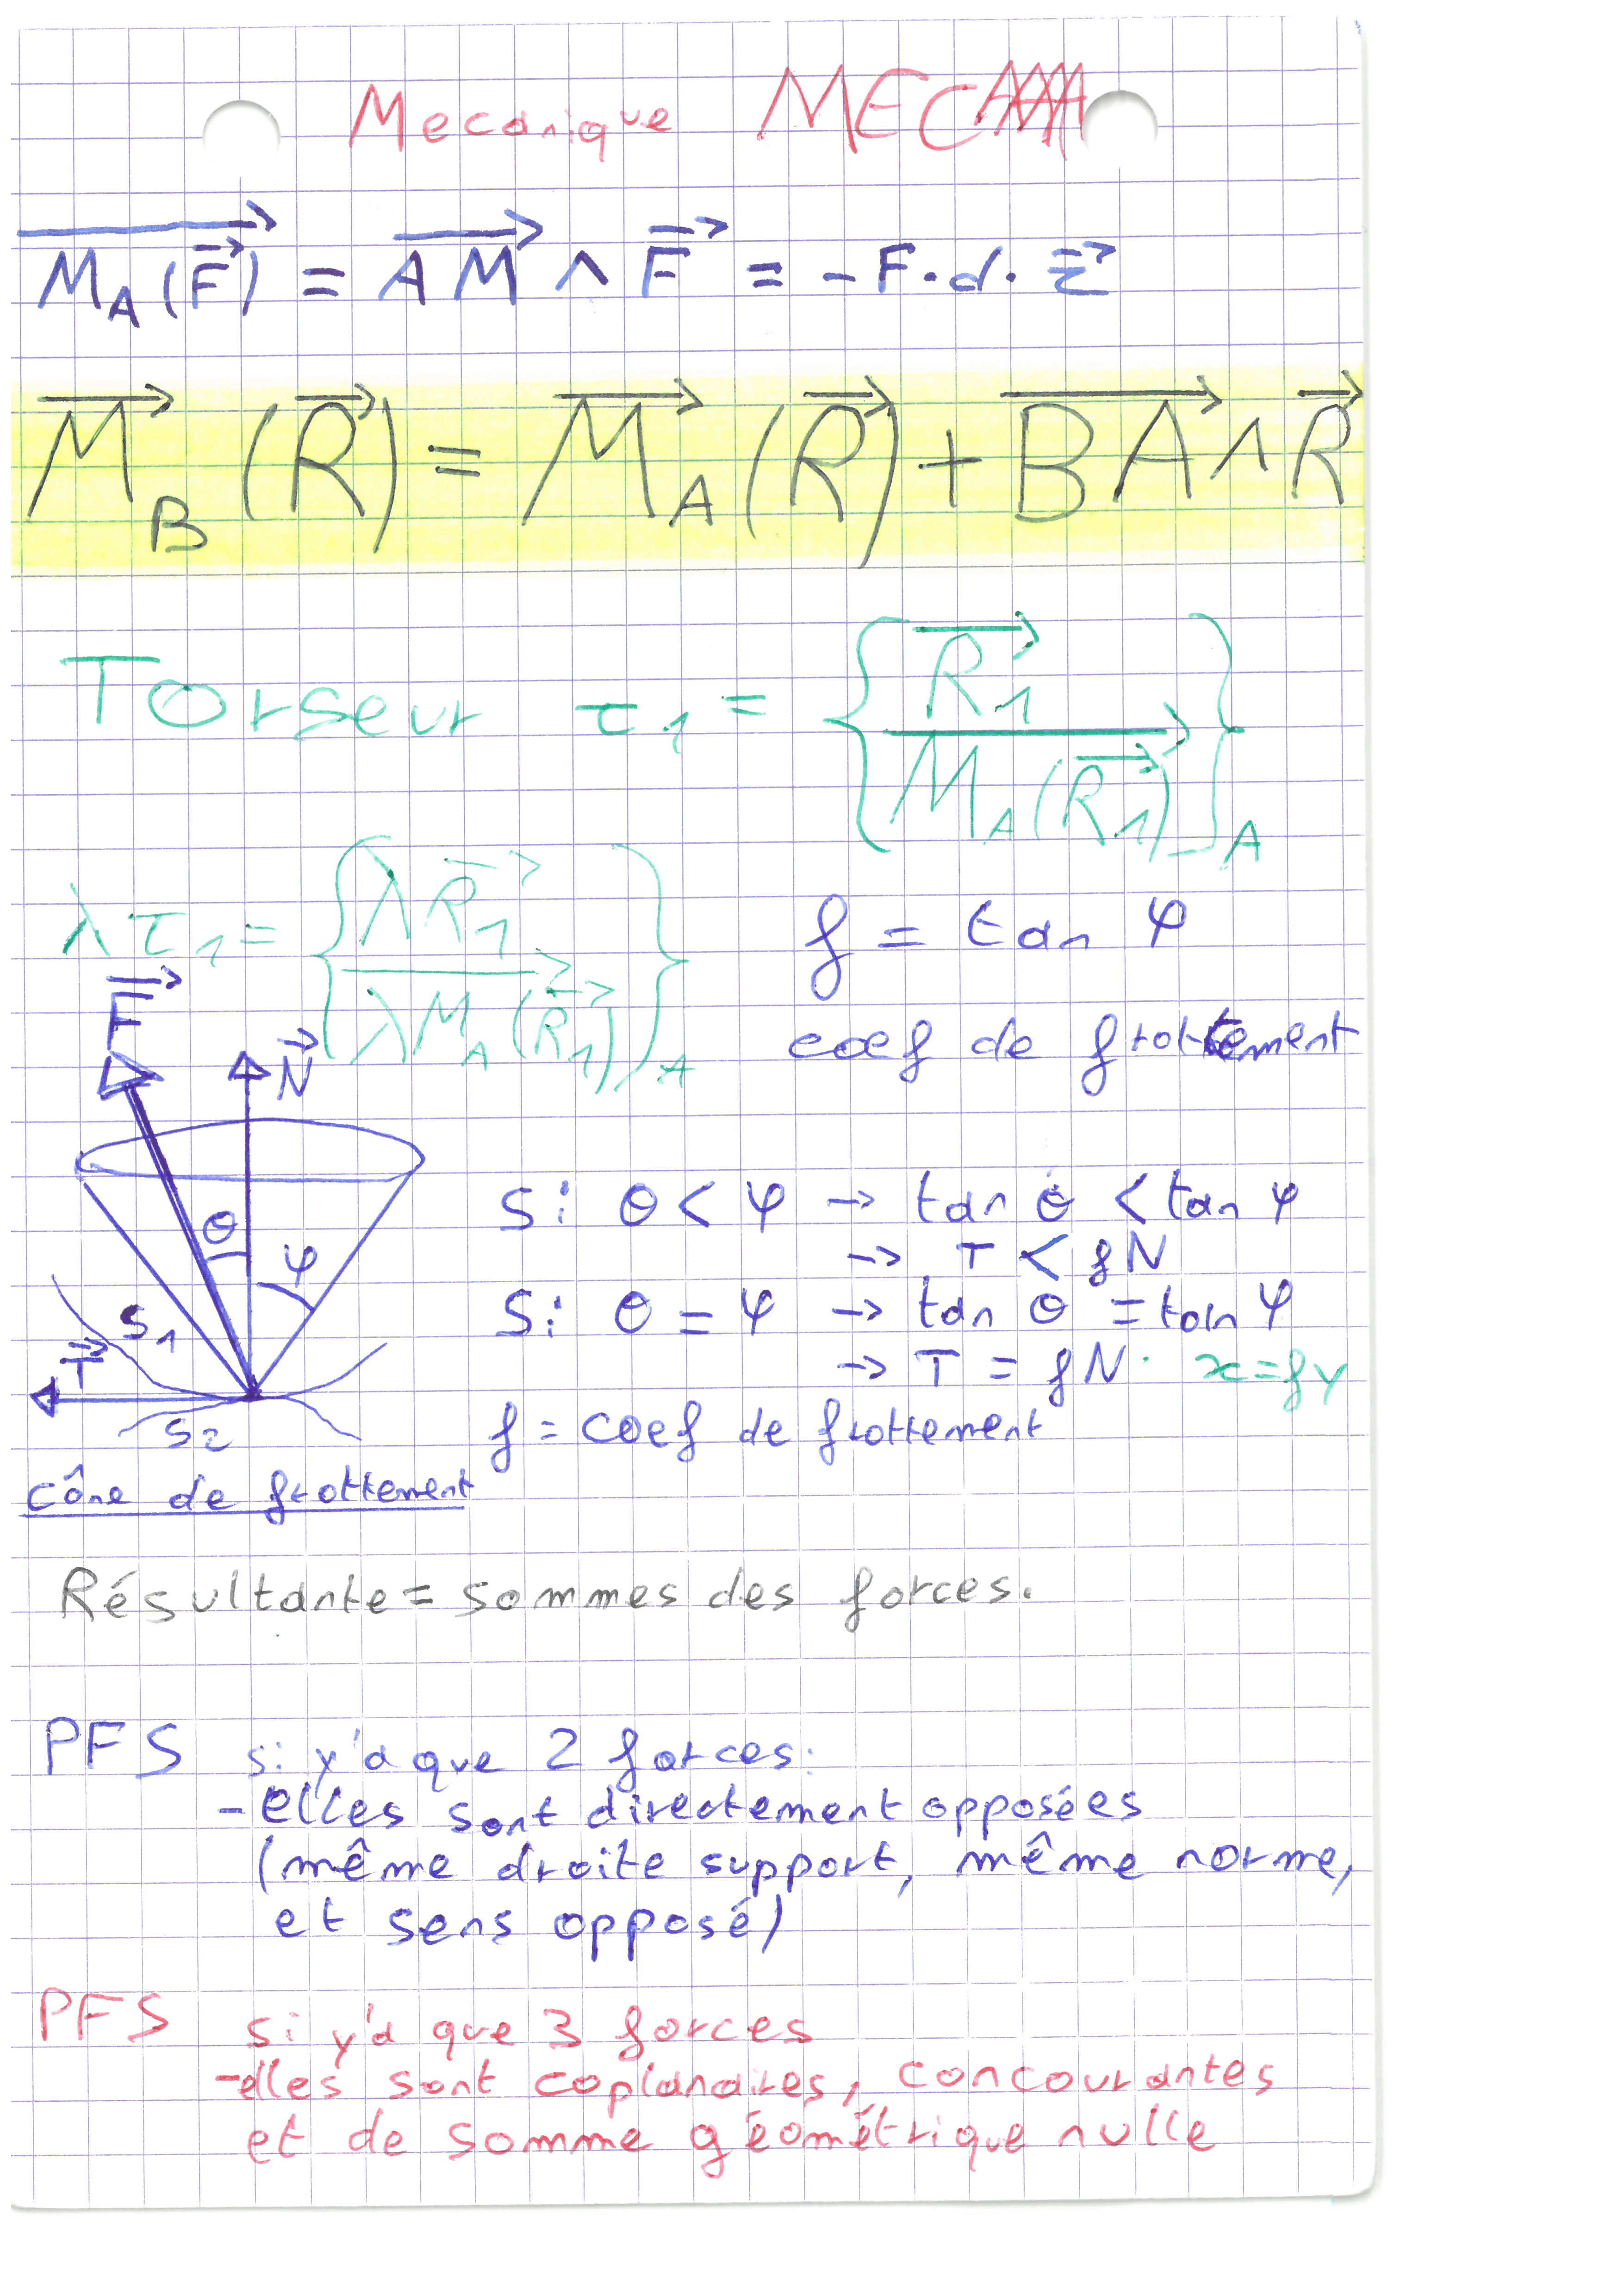 Mecanique MECAAAA
M_A(F) = AM ∧ F = -F·d·z
M_B (R) = M_A (R) + BA ∧ R
Torseur τ₁ = { R₁
M_A (R₁) }_A
λτ₁ = { λR₁
λM_A (R₁) }_A
f = tan φ
coef de frottement
F
N
θ
φ
S₁
T
S₂
cône de frottement
Si θ < φ → tan θ < tan φ
→ T < fN
Si θ = φ → tan θ = tan φ
→ T = fN · x = fy
f = coef de frottement
Résultante = sommes des forces.
PFS si y'a que 2 forces:
- elles sont directement opposées
(même droite support, même norme,
et sens opposé)
PFS si y'a que 3 forces
- elles sont coplanaires, concourantes
et de somme géométrique nulle